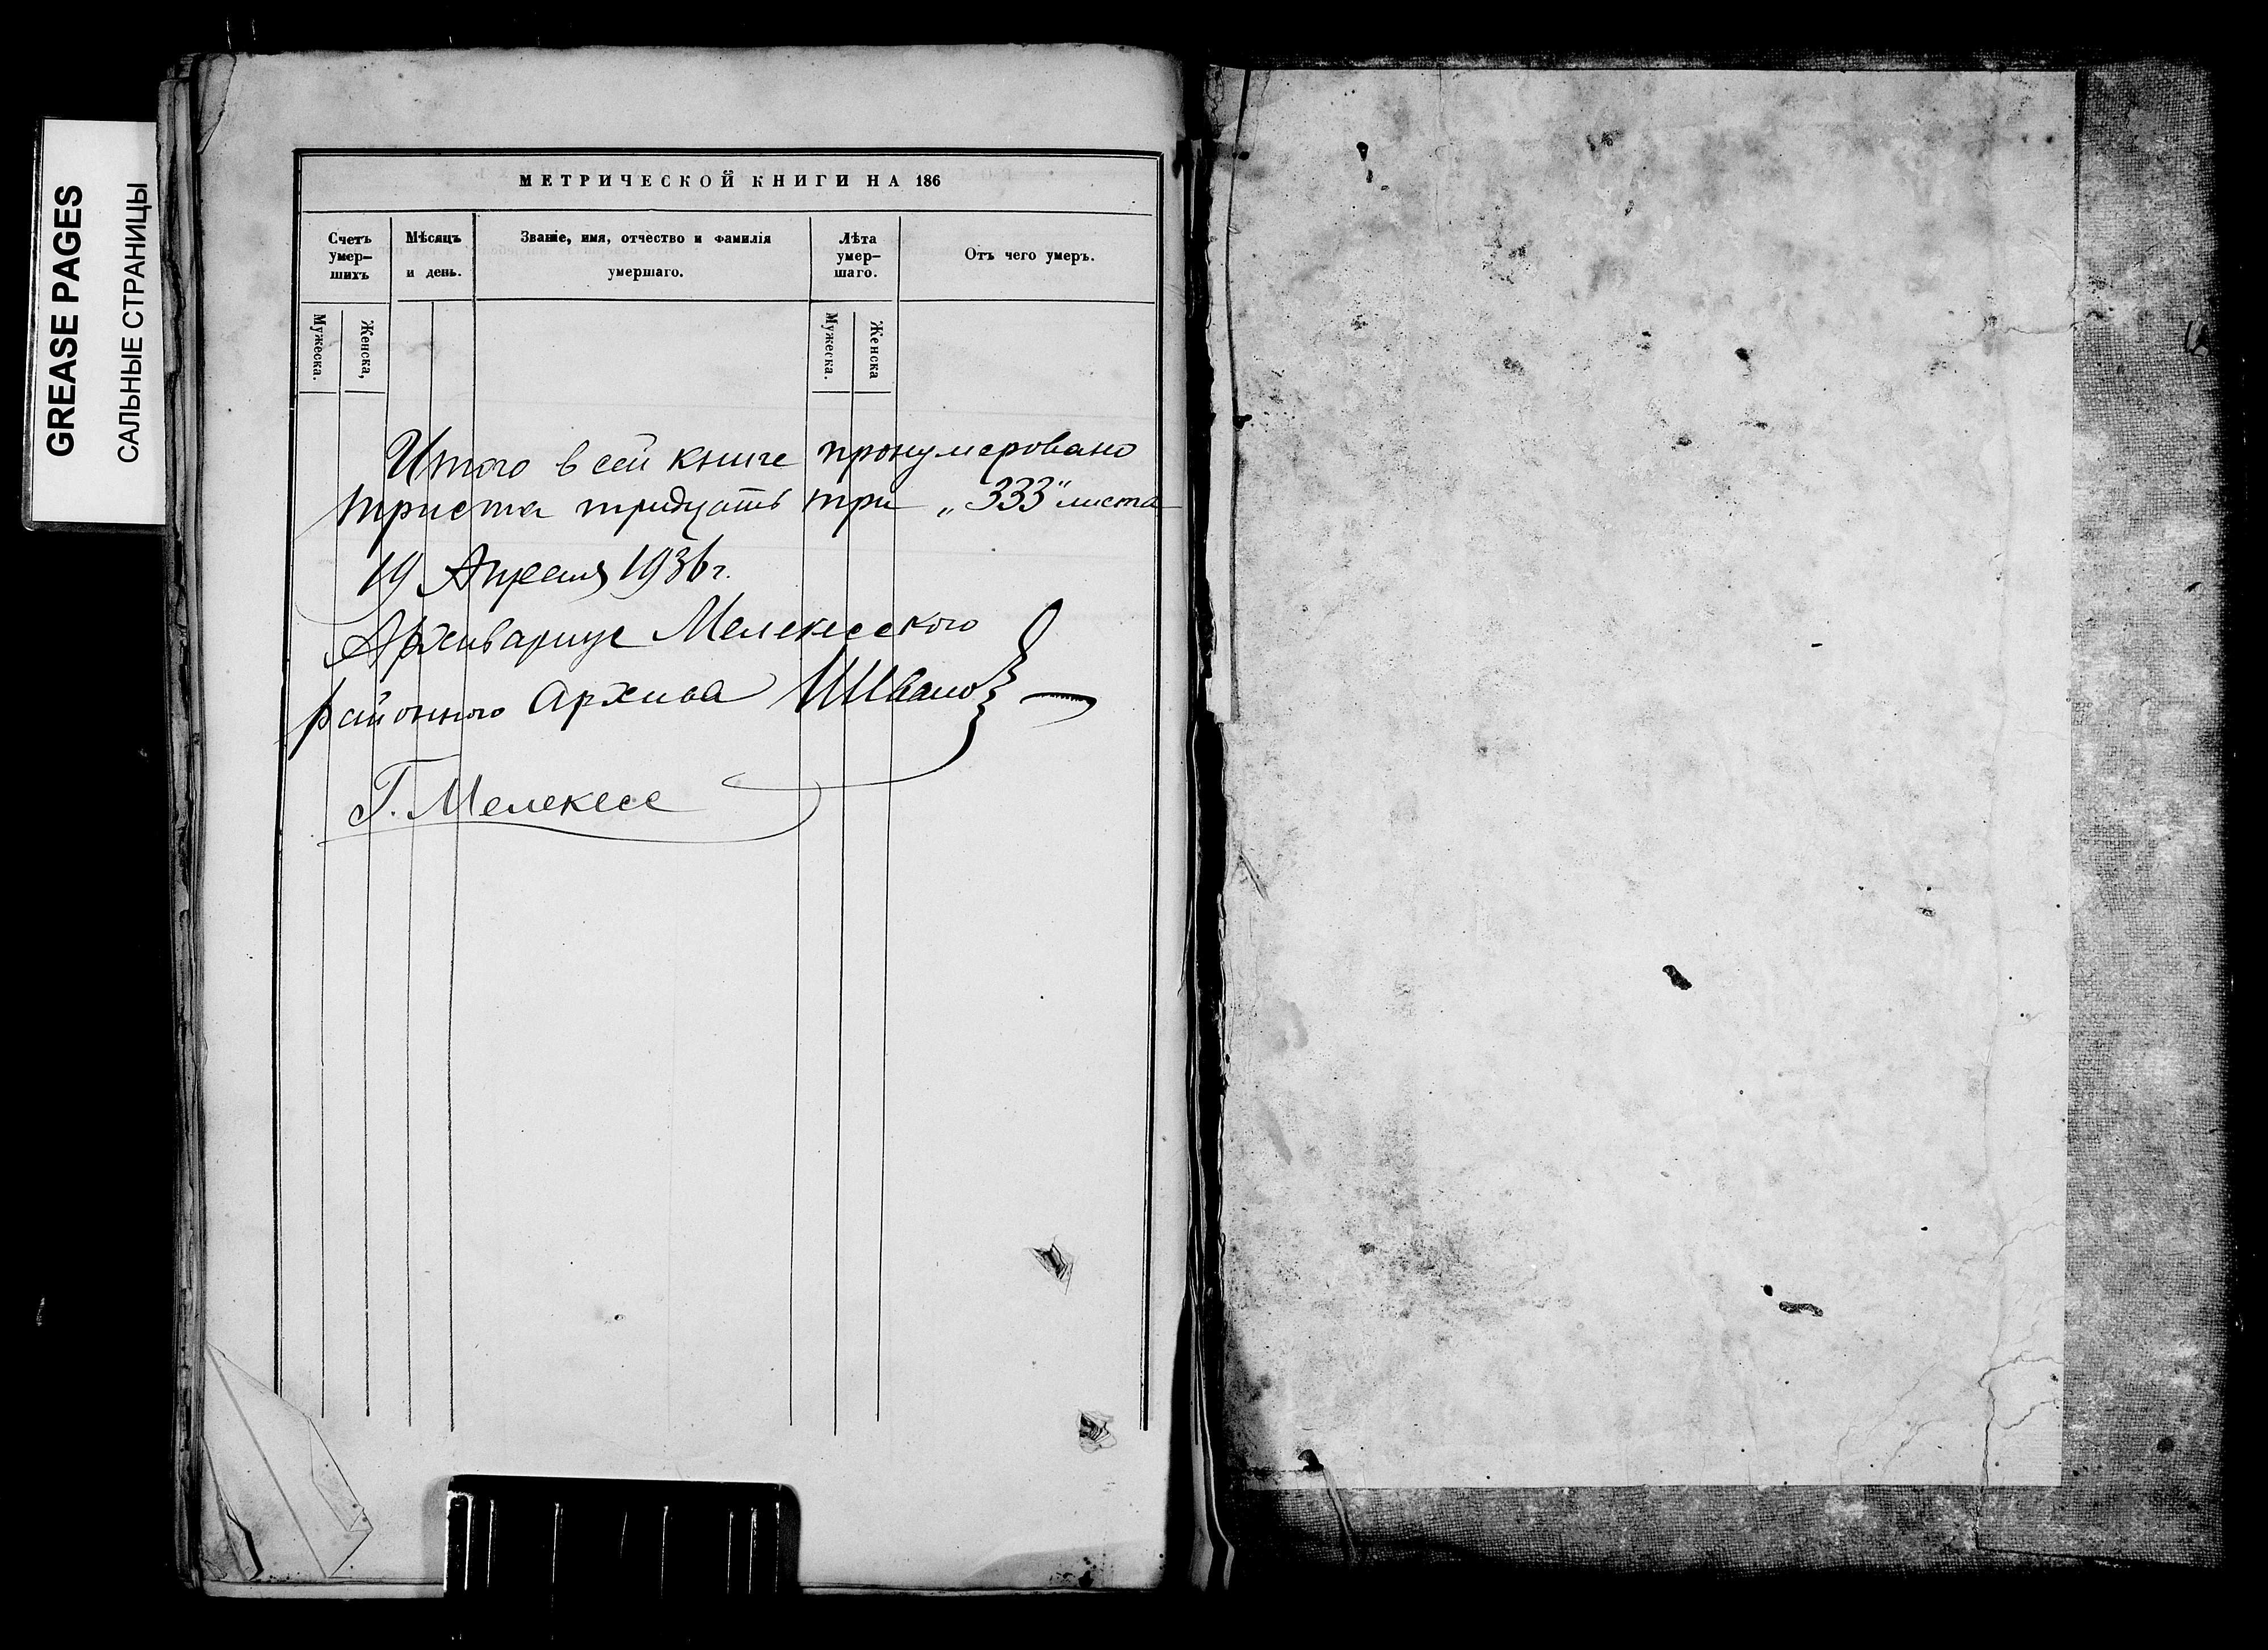 GREASE PAGES
САЛЬНЫЕ СТРАНИЦЫ
МЕТРИЧЕСКОЙ КНИГИ НА 186
Счетъ умер-шихъ
Мѣсяцъ и день.
Званіе, имя, отчество и фамилія умершаго.
Лѣта умер-шаго.
Отъ чего умеръ.
Мужеска.
Женска,
Мужеска.
Женска
Итого в сей книге пронумеровано
триста тридцать три „333" листа
19 Апреля 1936 г.
Архивариус Мелекесского
районного Архива
Г. Мелекесс